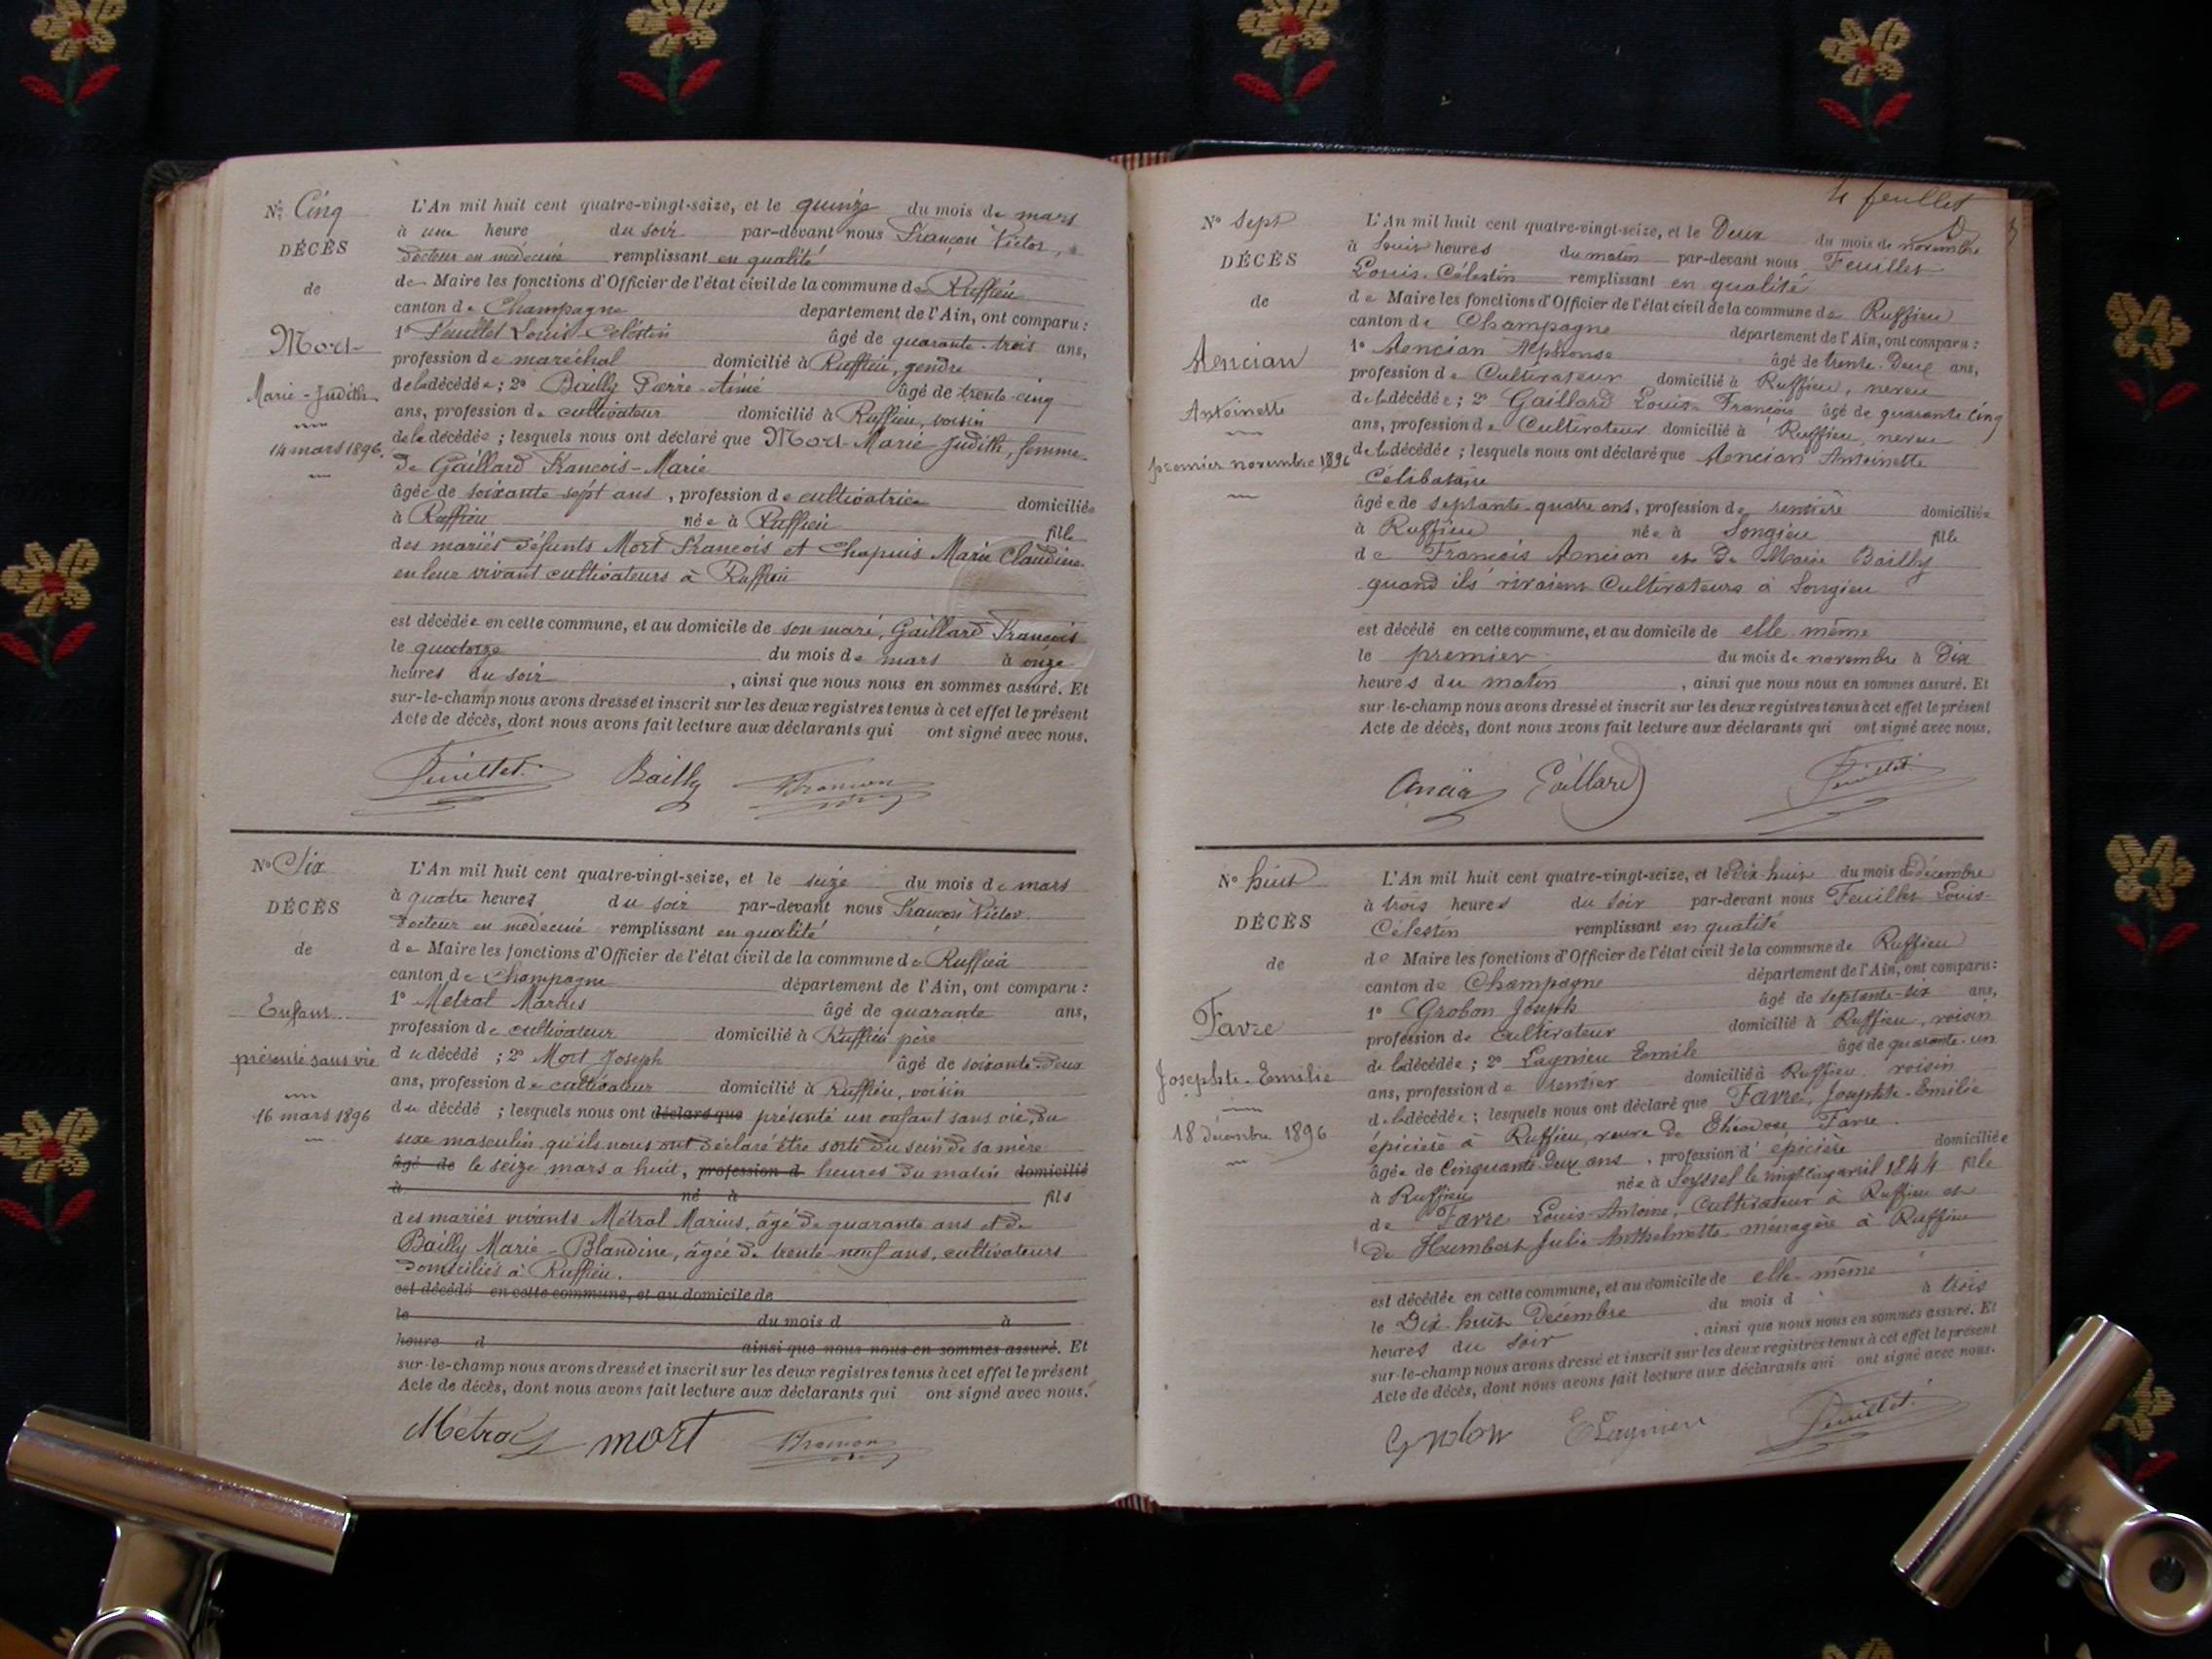 Nº Cinq
DÉCÈS
de
Mort
Marie-Judith
14 mars 1896.
L'An mil huit cent quatre-vingt-seize, et le quinze du mois de mars
à une heure du soir par-devant nous Françon Victor,
docteur en médecine remplissant en qualité
de Maire les fonctions d'Officier de l'état civil de la commune de Ruffieu
canton de Champagne département de l'Ain, ont comparu :
1º Feuillet Louis-Célestin âgé de quarante-trois ans,
profession de maréchal domicilié à Ruffieu, gendre
de la décédée ; 2º Bailly Pierre-Aimé âgé de trente-cinq
ans, profession de cultivateur domicilié à Ruffieu, voisin
de la décédée ; lesquels nous ont déclaré que Mort Marie Judith, femme
de Gaillard François-Marie
âgée de soixante-sept ans, profession de cultivatrice domiciliée
à Ruffieu née à Ruffieu fille
des mariés défunts Mort François et Chapuis Marie Claudine
en leur vivant cultivateurs à Ruffieu
est décédée en cette commune, et au domicile de son mari, Gaillard François
le quatorze du mois de mars à onze
heures du soir, ainsi que nous nous en sommes assuré. Et
sur-le-champ nous avons dressé et inscrit sur les deux registres tenus à cet effet le présent
Acte de décès, dont nous avons fait lecture aux déclarants qui ont signé avec nous.
Feuillet Bailly Françon
Nº Six
DÉCÈS
de
Enfant
présenté sans vie
16 mars 1896
L'An mil huit cent quatre-vingt-seize, et le seize du mois de mars
à quatre heures du soir par-devant nous Françon Victor
docteur en médecine remplissant en qualité
de Maire les fonctions d'Officier de l'état civil de la commune de Ruffieu
canton de Champagne département de l'Ain, ont comparu :
1º Métral Marius âgé de quarante ans,
profession de cultivateur domicilié à Ruffieu père
du décédé ; 2º Mort Joseph âgé de soixante-deux
ans, profession de cultivateur domicilié à Ruffieu, voisin
du décédé ; lesquels nous ont déclaré que présenté un enfant sans vie, du
sexe masculin qu'ils nous ont déclaré être sorti du sein de sa mère
âgé de le seize mars a huit, profession d heures du matin domicilié
à né à fils
des mariés vivants Métral Marius, âgé de quarante ans et de
Bailly Marie-Blandine, âgée de trente-neuf ans, cultivateurs
domiciliés à Ruffieu.
est décédé en cette commune, et au domicile de
le du mois d à
heure d ainsi que nous nous en sommes assuré. Et
sur-le-champ nous avons dressé et inscrit sur les deux registres tenus à cet effet le présent
Acte de décès, dont nous avons fait lecture aux déclarants qui ont signé avec nous.
Métral mort Françon
4 feuillet
Nº Sept
DÉCÈS
de
Ancian
Antoinette
premier novembre 1896
L'An mil huit cent quatre-vingt-seize, et le Deux du mois de novembre
à heures du matin par-devant nous Feuillet
Louis-Célestin remplissant en qualité
de Maire les fonctions d'Officier de l'état civil de la commune de Ruffieu
canton de Champagne département de l'Ain, ont comparu :
1º Ancian Alphonse âgé de trente-Deux ans,
profession de Cultivateur domicilié à Ruffieu, neveu
de la décédée ; 2º Gaillard Louis-François âgé de quarante cinq
ans, profession de Cultivateur domicilié à Ruffieu, neveu
de la décédée ; lesquels nous ont déclaré que Ancian Antoinette
Célibataire
âgée de septante-quatre ans, profession de rentière domiciliée
à Ruffieu née à Songieu fille
de François Ancian et de Marie Bailly
quand ils vivaient Cultivateurs à Songieu
est décédé en cette commune, et au domicile de elle même
le premier du mois de novembre à Dix
heures du matin, ainsi que nous nous en sommes assuré. Et
sur-le-champ nous avons dressé et inscrit sur les deux registres tenus à cet effet le présent
Acte de décès, dont nous avons fait lecture aux déclarants qui ont signé avec nous.
Ancian Gaillard Feuillet
Nº huit
DÉCÈS
de
Favre
Josephte-Emilie
18 décembre 1896
L'An mil huit cent quatre-vingt-seize, et le Dix-huit du mois de décembre
à trois heures du soir par-devant nous Feuillet Louis-
Célestin remplissant en qualité
de Maire les fonctions d'Officier de l'état civil de la commune de Ruffieu
canton de Champagne département de l'Ain, ont comparu :
1º Grobon Joseph âgé de septante-six ans,
profession de cultivateur domicilié à Ruffieu, voisin
de la décédée ; 2º Lagnieu Emile âgé de quarante-un
ans, profession de rentier domicilié à Ruffieu voisin
de la décédée ; lesquels nous ont déclaré que Favre, Josephte-Emilie
épicière à Ruffieu, veuve de Théodore Favre
âgée de Cinquante deux ans, profession d'épicière domiciliée
à Ruffieu née à Seyssel le vingt cinq avril 1844 fille
de Favre Louis-Antoine, Cultivateur à Ruffieu et
de Humbert Julie Anthelmette ménagère à Ruffieu
est décédée en cette commune, et au domicile de elle-même
le Dix-huit Décembre du mois d à trois
heures du soir, ainsi que nous nous en sommes assuré. Et
sur-le-champ nous avons dressé et inscrit sur les deux registres tenus à cet effet le présent
Acte de décès, dont nous avons fait lecture aux déclarants qui ont signé avec nous.
Grobon E Lagnieu Feuillet